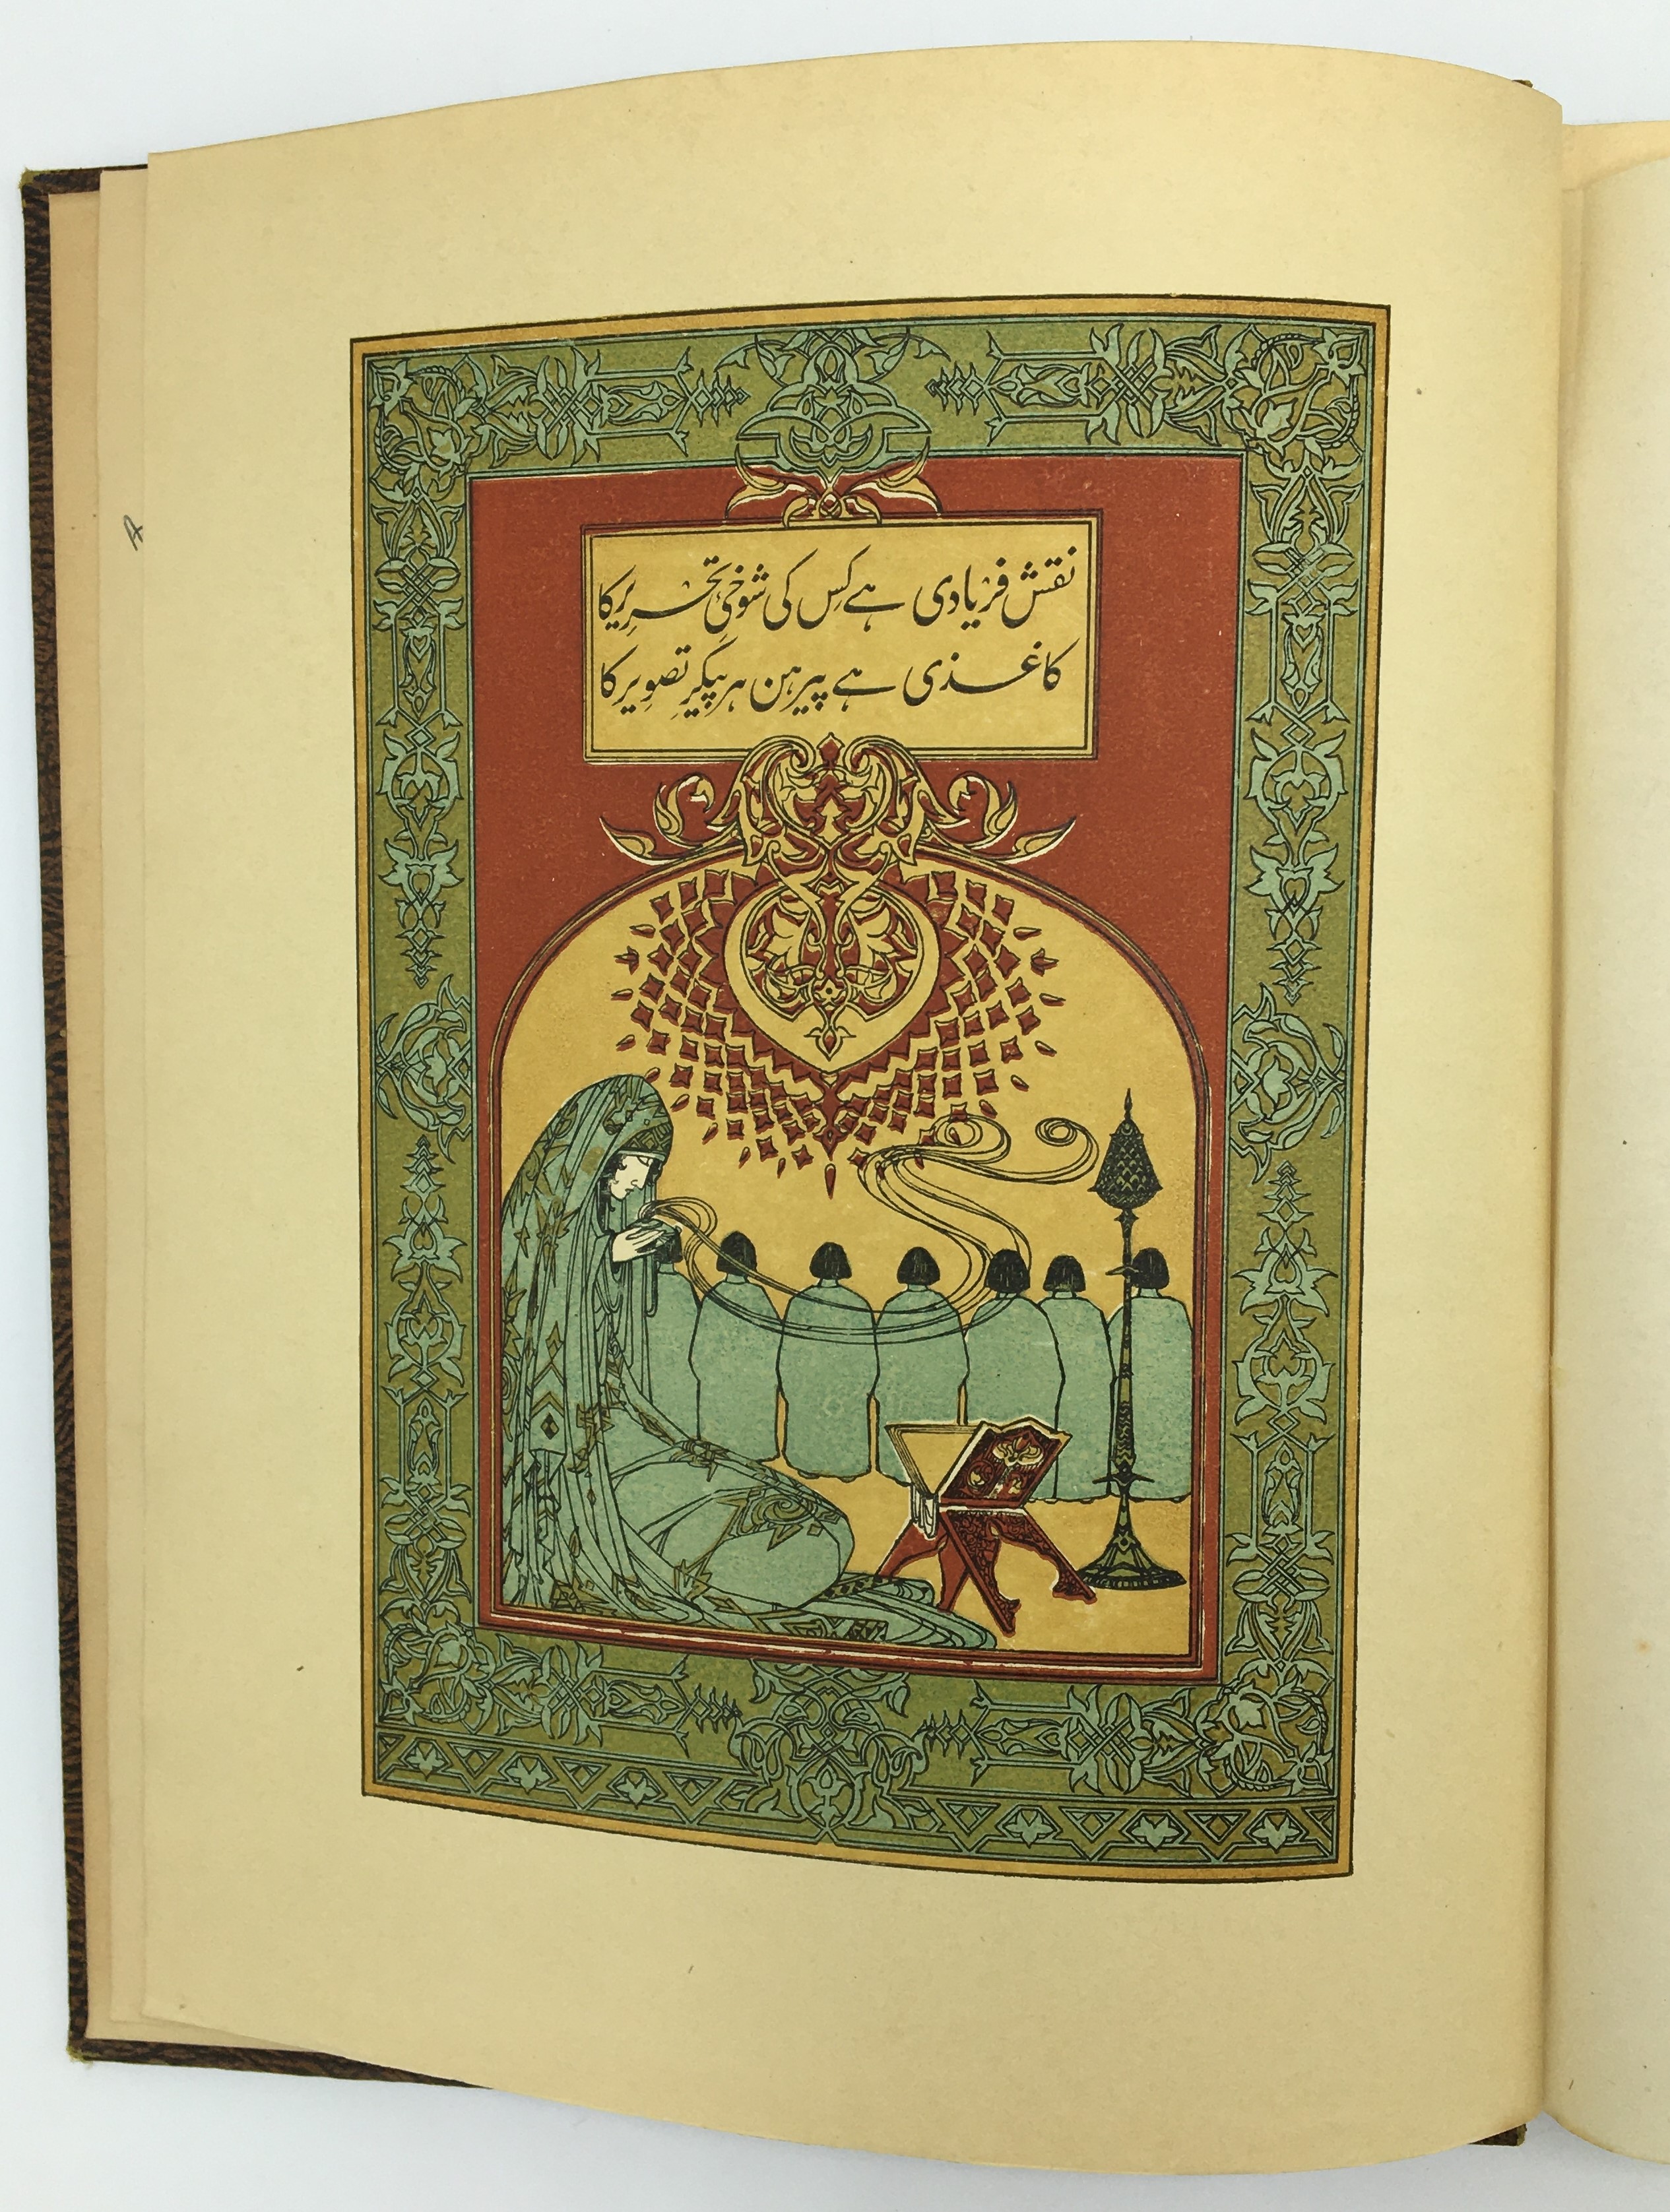 نقش فریادی ہے کِس کی شوخیِ تحریر کا
کاغذی ہے پیرہن ہر پیکرِ تصویر کا
A